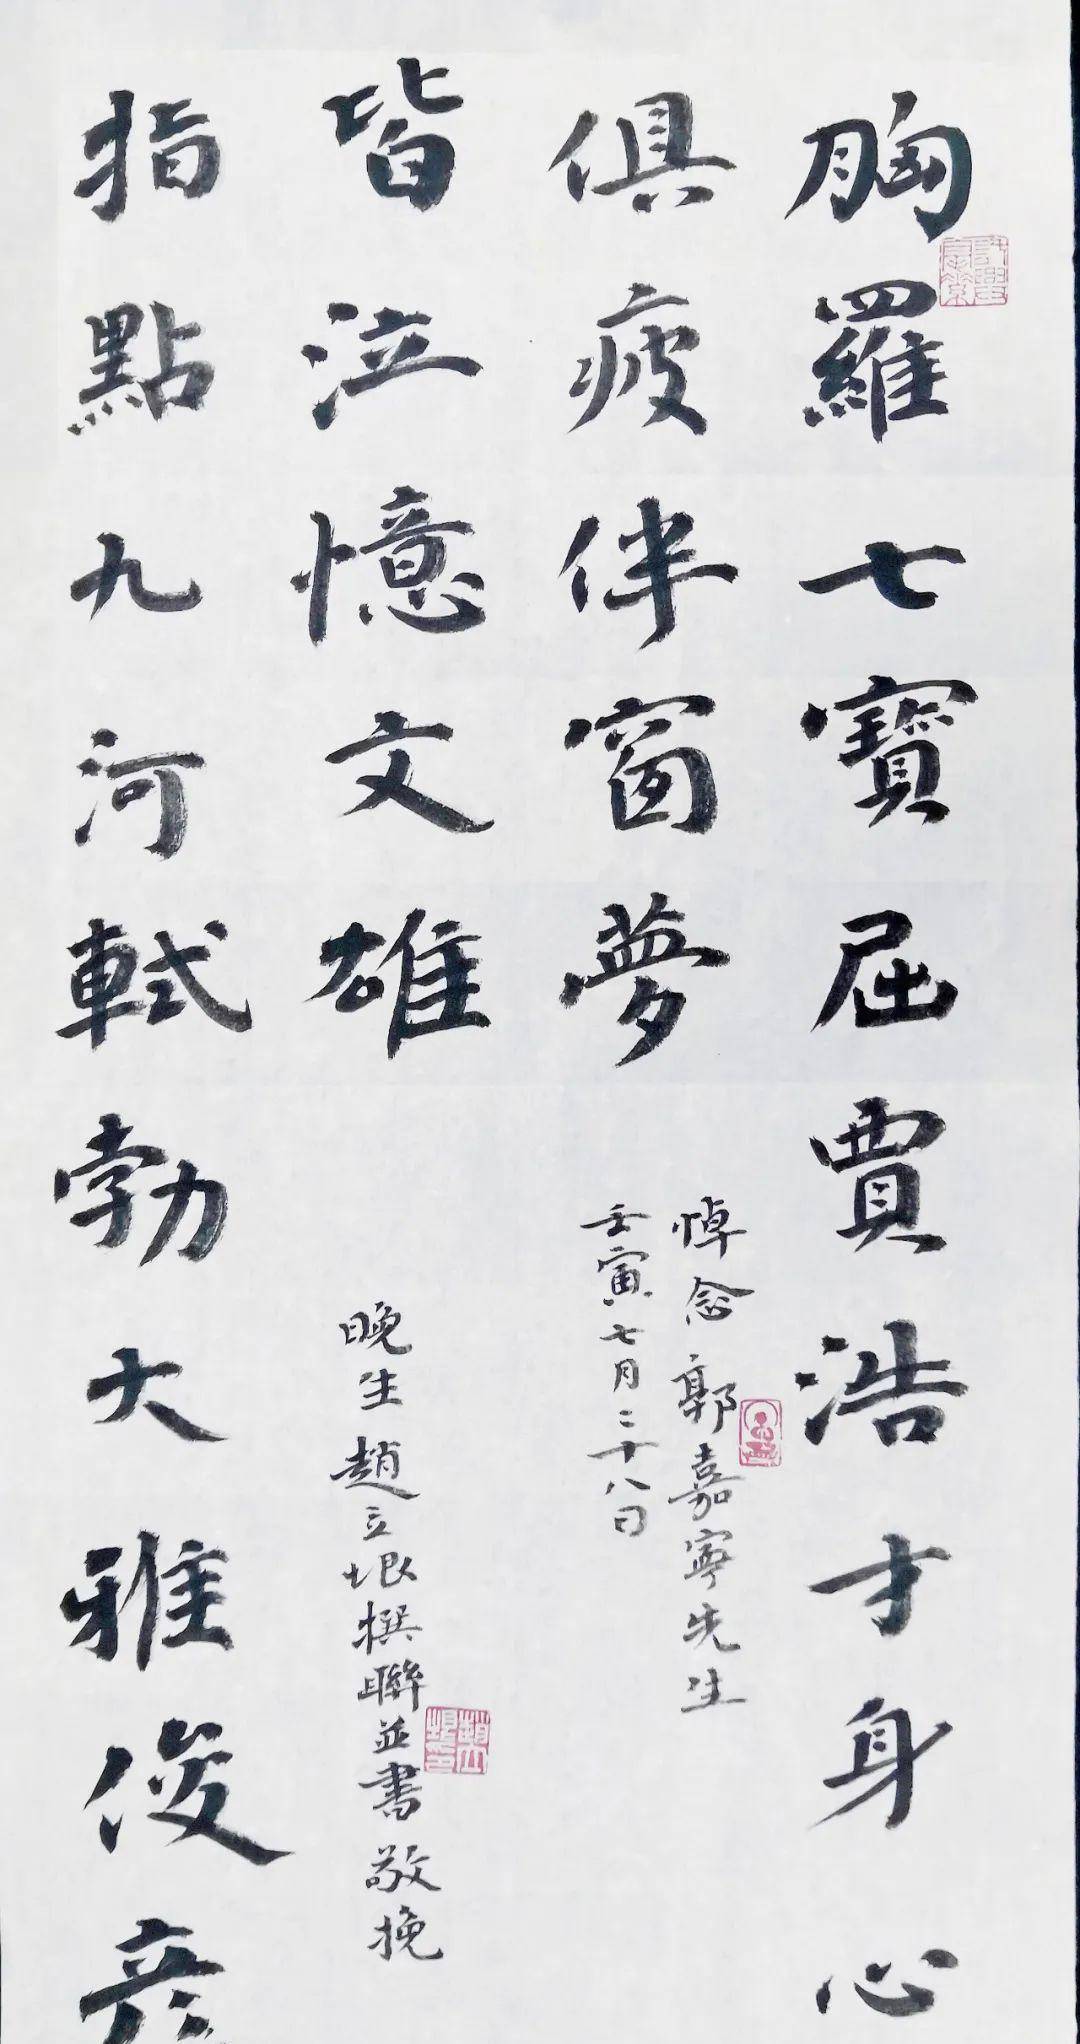 胸羅七寶屈賈浩才身心
俱疲伴窗夢
悼念郭嘉寧先生
壬寅七月二十八日
指點九河軾勃大雅俊彥
皆泣憶文雄
晚生趙立垠撰聯並書敬挽